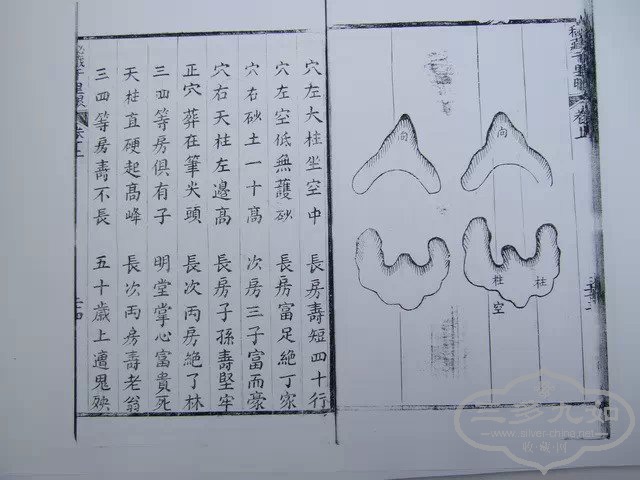 向
向
柱
柱
空
穴左大柱坐空中 長房壽短四十行
穴左空低無護砂 長房富足絶丁家
穴右砂土一十高 次房三子富而豪
穴右天柱左邊高 長房子孫壽堅牢
正穴葬在筆尖頭 長次丙房絶了林
三四等房俱有子 明堂掌心富貴死
天柱直硬起高峰 長次丙房壽老翁
三四等房壽不長 五十歲上遭鬼殃
千里眼 卷上
www.silver-china.net